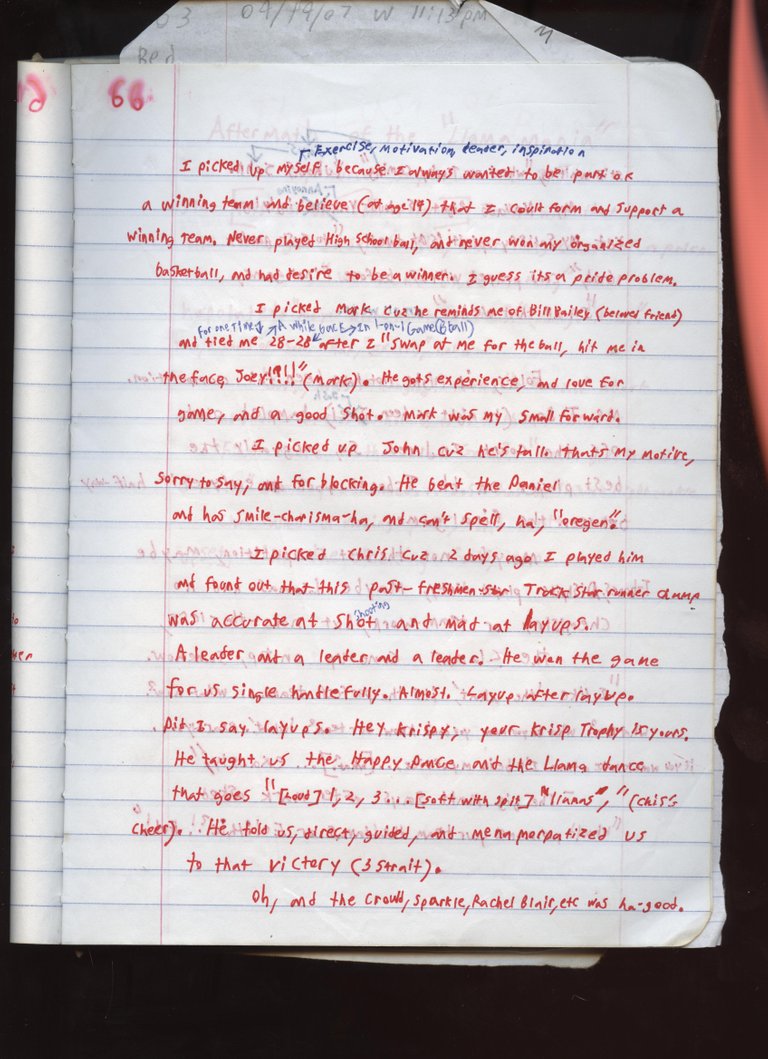 03 04/19/07 W 11:13pm
Red
99
Exercise, motivation, leader, inspiration
I picked up myself because I always wanted to be part of
Annoying
a winning team and believe (at age 19) that I could form and support a
winning team. Never played High School ball, and never won any organized
basketball, and had desire to be a winner. I guess its a pride problem.
I picked Mark cuz he reminds me of Bill Bailey (beloved friend)
For one time A while back In 1-on-1 Game (Bball)
and tied me 28-28 after I "swap at me for the ball, hit me in
the face, Joey!?!!" (Mark). He gots experience, and love for
game, and a good shot. Mark was my small forward.
I picked up John cuz he's tall, thats my motive,
sorry to say, and for blocking. He beat the Daniel
and has smile-charisma-ha, and can't spell, ha, "oregen."
I picked Chris cuz 2 days ago I played him
and found out that this past-freshmen-star Track star runner champ
shooting
was accurate at shot and mad at layups.
A leader and a leader and a leader. He won the game
for us single handlefully. Almost. Layup after layup.
Did I say layups. Hey Krispy, your Krisp Trophy is yours.
He taught us the Happy Dance and the Llama dance
that goes "[Loud] 1, 2, 3... [soft with spit] "llamas", "(chis's
cheer). He told us, direct, guided, and menamorpatized us
to that victory (3 strait).
Oh, and the crowd, Sparkle, Rachel Blair, etc was ha-good.